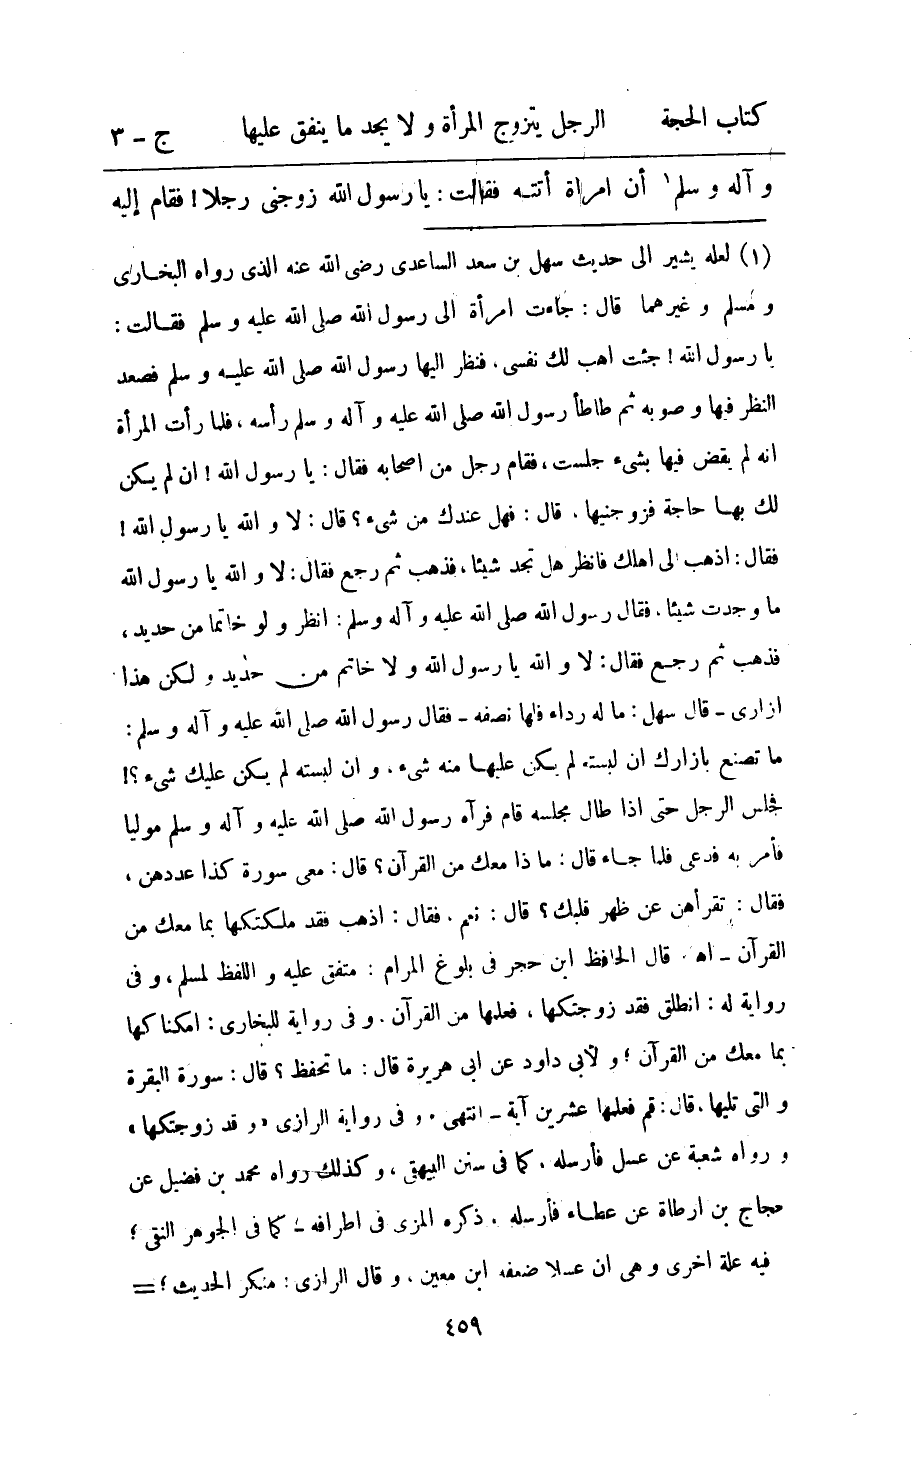 كتاب الحجة الرجل يتزوج المرأة و لا يجد ما ينفق عليها ج - ٣
و آله و سلم ١ أن امرأة أتته فقالت : يا رسول الله زوجنى رجلا ! فقام إليه
(١) لعله يشير الى حديث سهل بن سعد الساعدى رضى الله عنه الذى رواه البخارى
و مسلم و غيرهما قال : جاءت امرأة الى رسول الله صلى الله عليه و سلم فقالت :
يا رسول الله ! جئت اهب لك نفسى ، فنظر اليها رسول الله صلى الله عليه و سلم فصعد
النظر فيها و صوبه ثم طأطأ رسول الله صلى الله عليه و آله و سلم رأسه ، فلما رأت المرأة
انه لم يقض فيها بشىء جلست ، فقام رجل من اصحابه فقال : يا رسول الله ! ان لم يكن
لك بها حاجة فزوجنيها . قال : فهل عندك من شىء ؟ قال : لا و الله يا رسول الله !
فقال : اذهب الى اهلك فانظر هل تجد شيئا ، فذهب ثم رجع فقال : لا و الله يا رسول الله
ما وجدت شيئا . فقال رسول الله صلى الله عليه و آله و سلم : انظر و لو خاتما من حديد ،
فذهب ثم رجع فقال : لا و الله يا رسول الله و لا خاتم من حديد و لكن هذا
ازارى - قال سهل : ما له رداء فلها نصفه - فقال رسول الله صلى الله عليه و آله و سلم :
ما تصنع بازارك ان لبسته لم يكن عليها منه شىء ، و ان لبسته لم يكن عليك شىء ؟!
فجلس الرجل حتى اذا طال مجلسه قام فرآه رسول الله صلى الله عليه و آله و سلم موليا
فأمر به فدعى فلما جاء قال : ما ذا معك من القرآن ؟ قال : معى سورة كذا عددهن ،
فقال : تقرأهن عن ظهر قلبك ؟ قال : نعم . فقال : اذهب فقد ملكتكها بما معك من
القرآن - اهـ . قال الحافظ ابن حجر فى بلوغ المرام : متفق عليه و اللفظ لمسلم ، و فى
رواية له : انطلق فقد زوجتكها ، فعلمها من القرآن . و فى رواية للبخارى : امكناكها
بما معك من القرآن ؛ و لأبى داود عن ابى هريرة قال : ما تحفظ ؟ قال : سورة البقرة
و التى تليها . قال : قم فعلمها عشرين آية - انتهى . و فى رواية الرازى « و قد زوجتكها »
و رواه شعبة عن عسل فأرسله . كما فى سنن البيهقى ، و كذلك رواه محمد بن فضيل عن
حجاج بن ارطاة عن عطاء فأرسله . ذكره المزى فى اطرافه - كما فى الجوهر النقى ؛
فيه علة اخرى و هى ان عسلا ضعفه ابن معين ، و قال الرازى : منكر الحديث ؛ =
٤٥٩